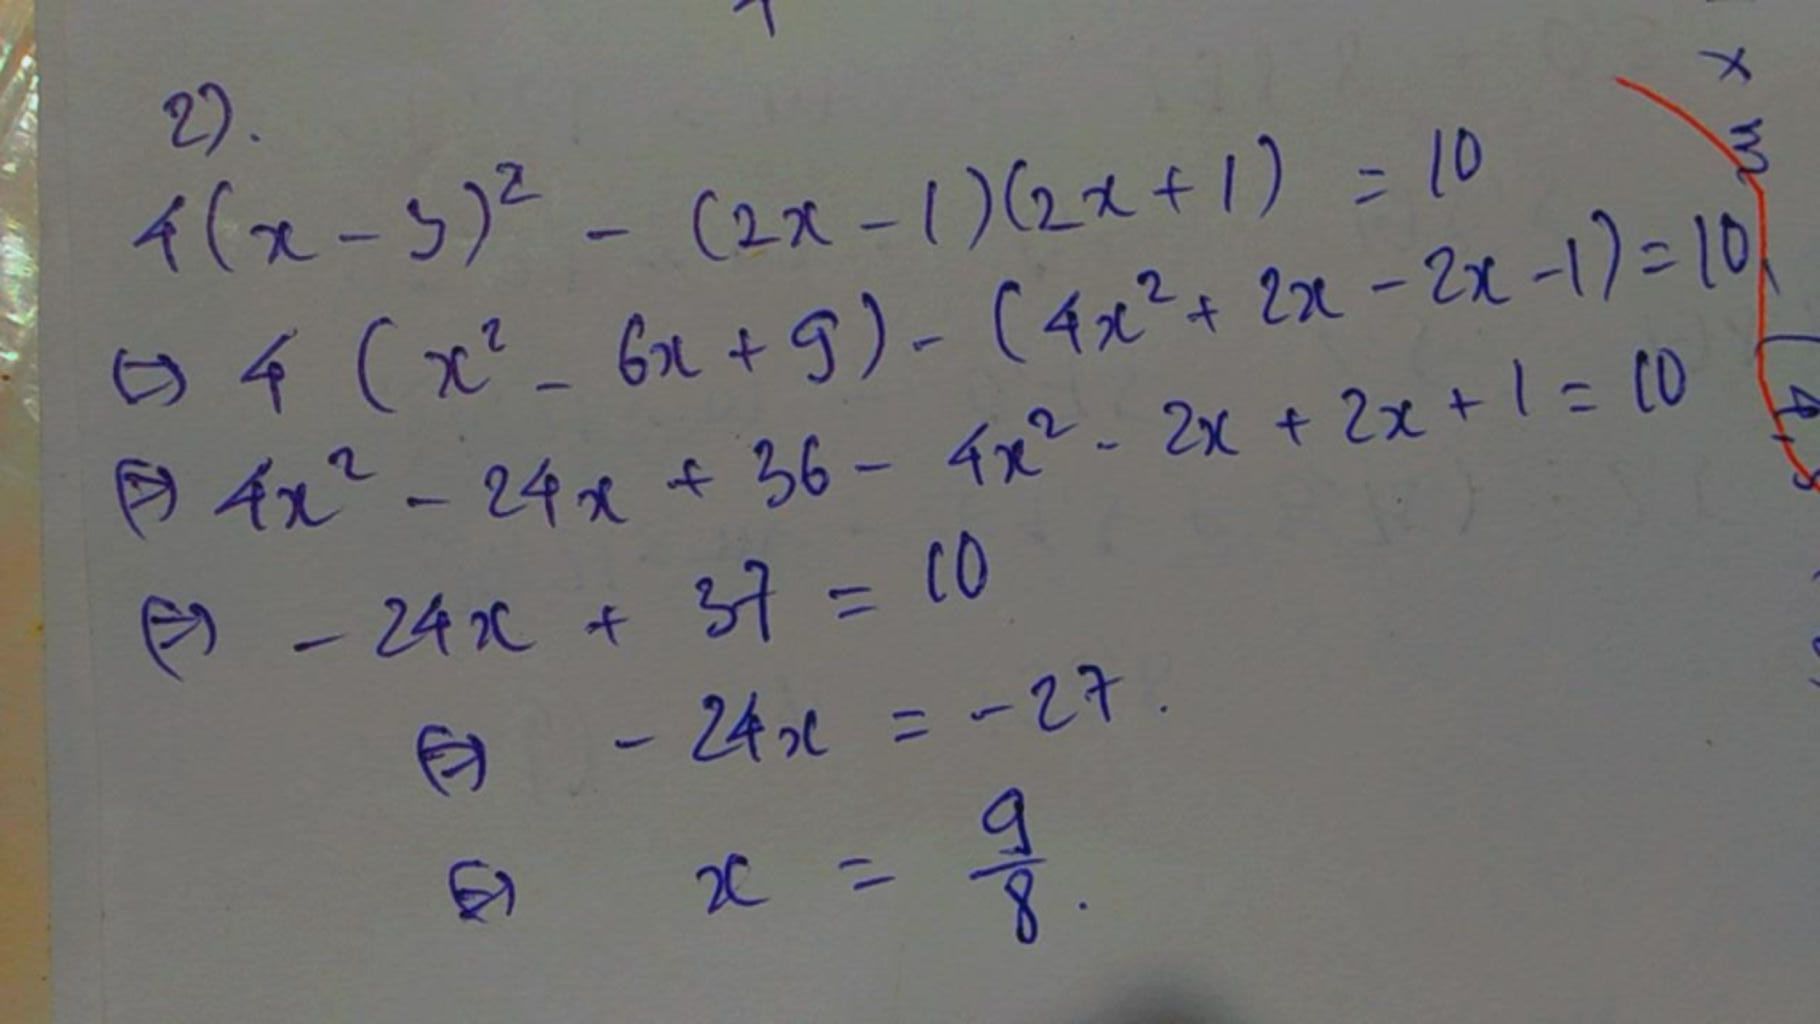 2).
4(x - 3)² - (2x - 1)(2x + 1) = 10
⇔ 4 (x² - 6x + 9) - (4x² + 2x - 2x - 1) = 10
⇔ 4x² - 24x + 36 - 4x² - 2x + 2x + 1 = 10
⇔ - 24x + 37 = 10
⇔ - 24x = -27.
⇔ x = 9/8.